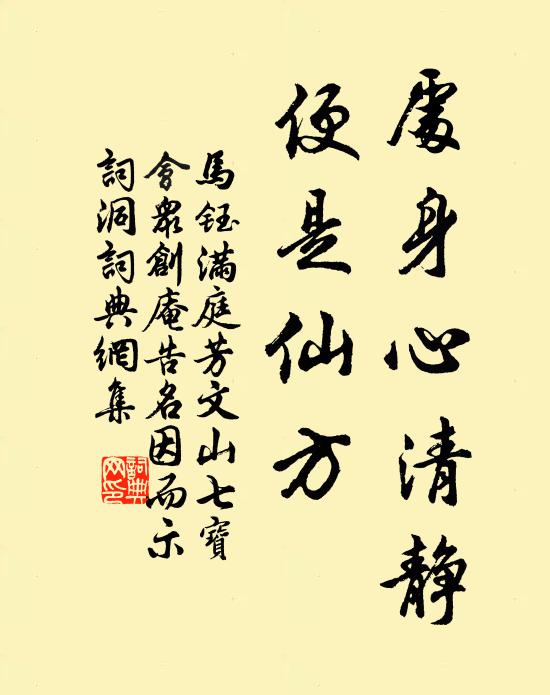 處身心清静
便是仙方
馬鈺滿庭芳文山七寶
會眾創庵告名因而示
詞洞詞典網集
詞典